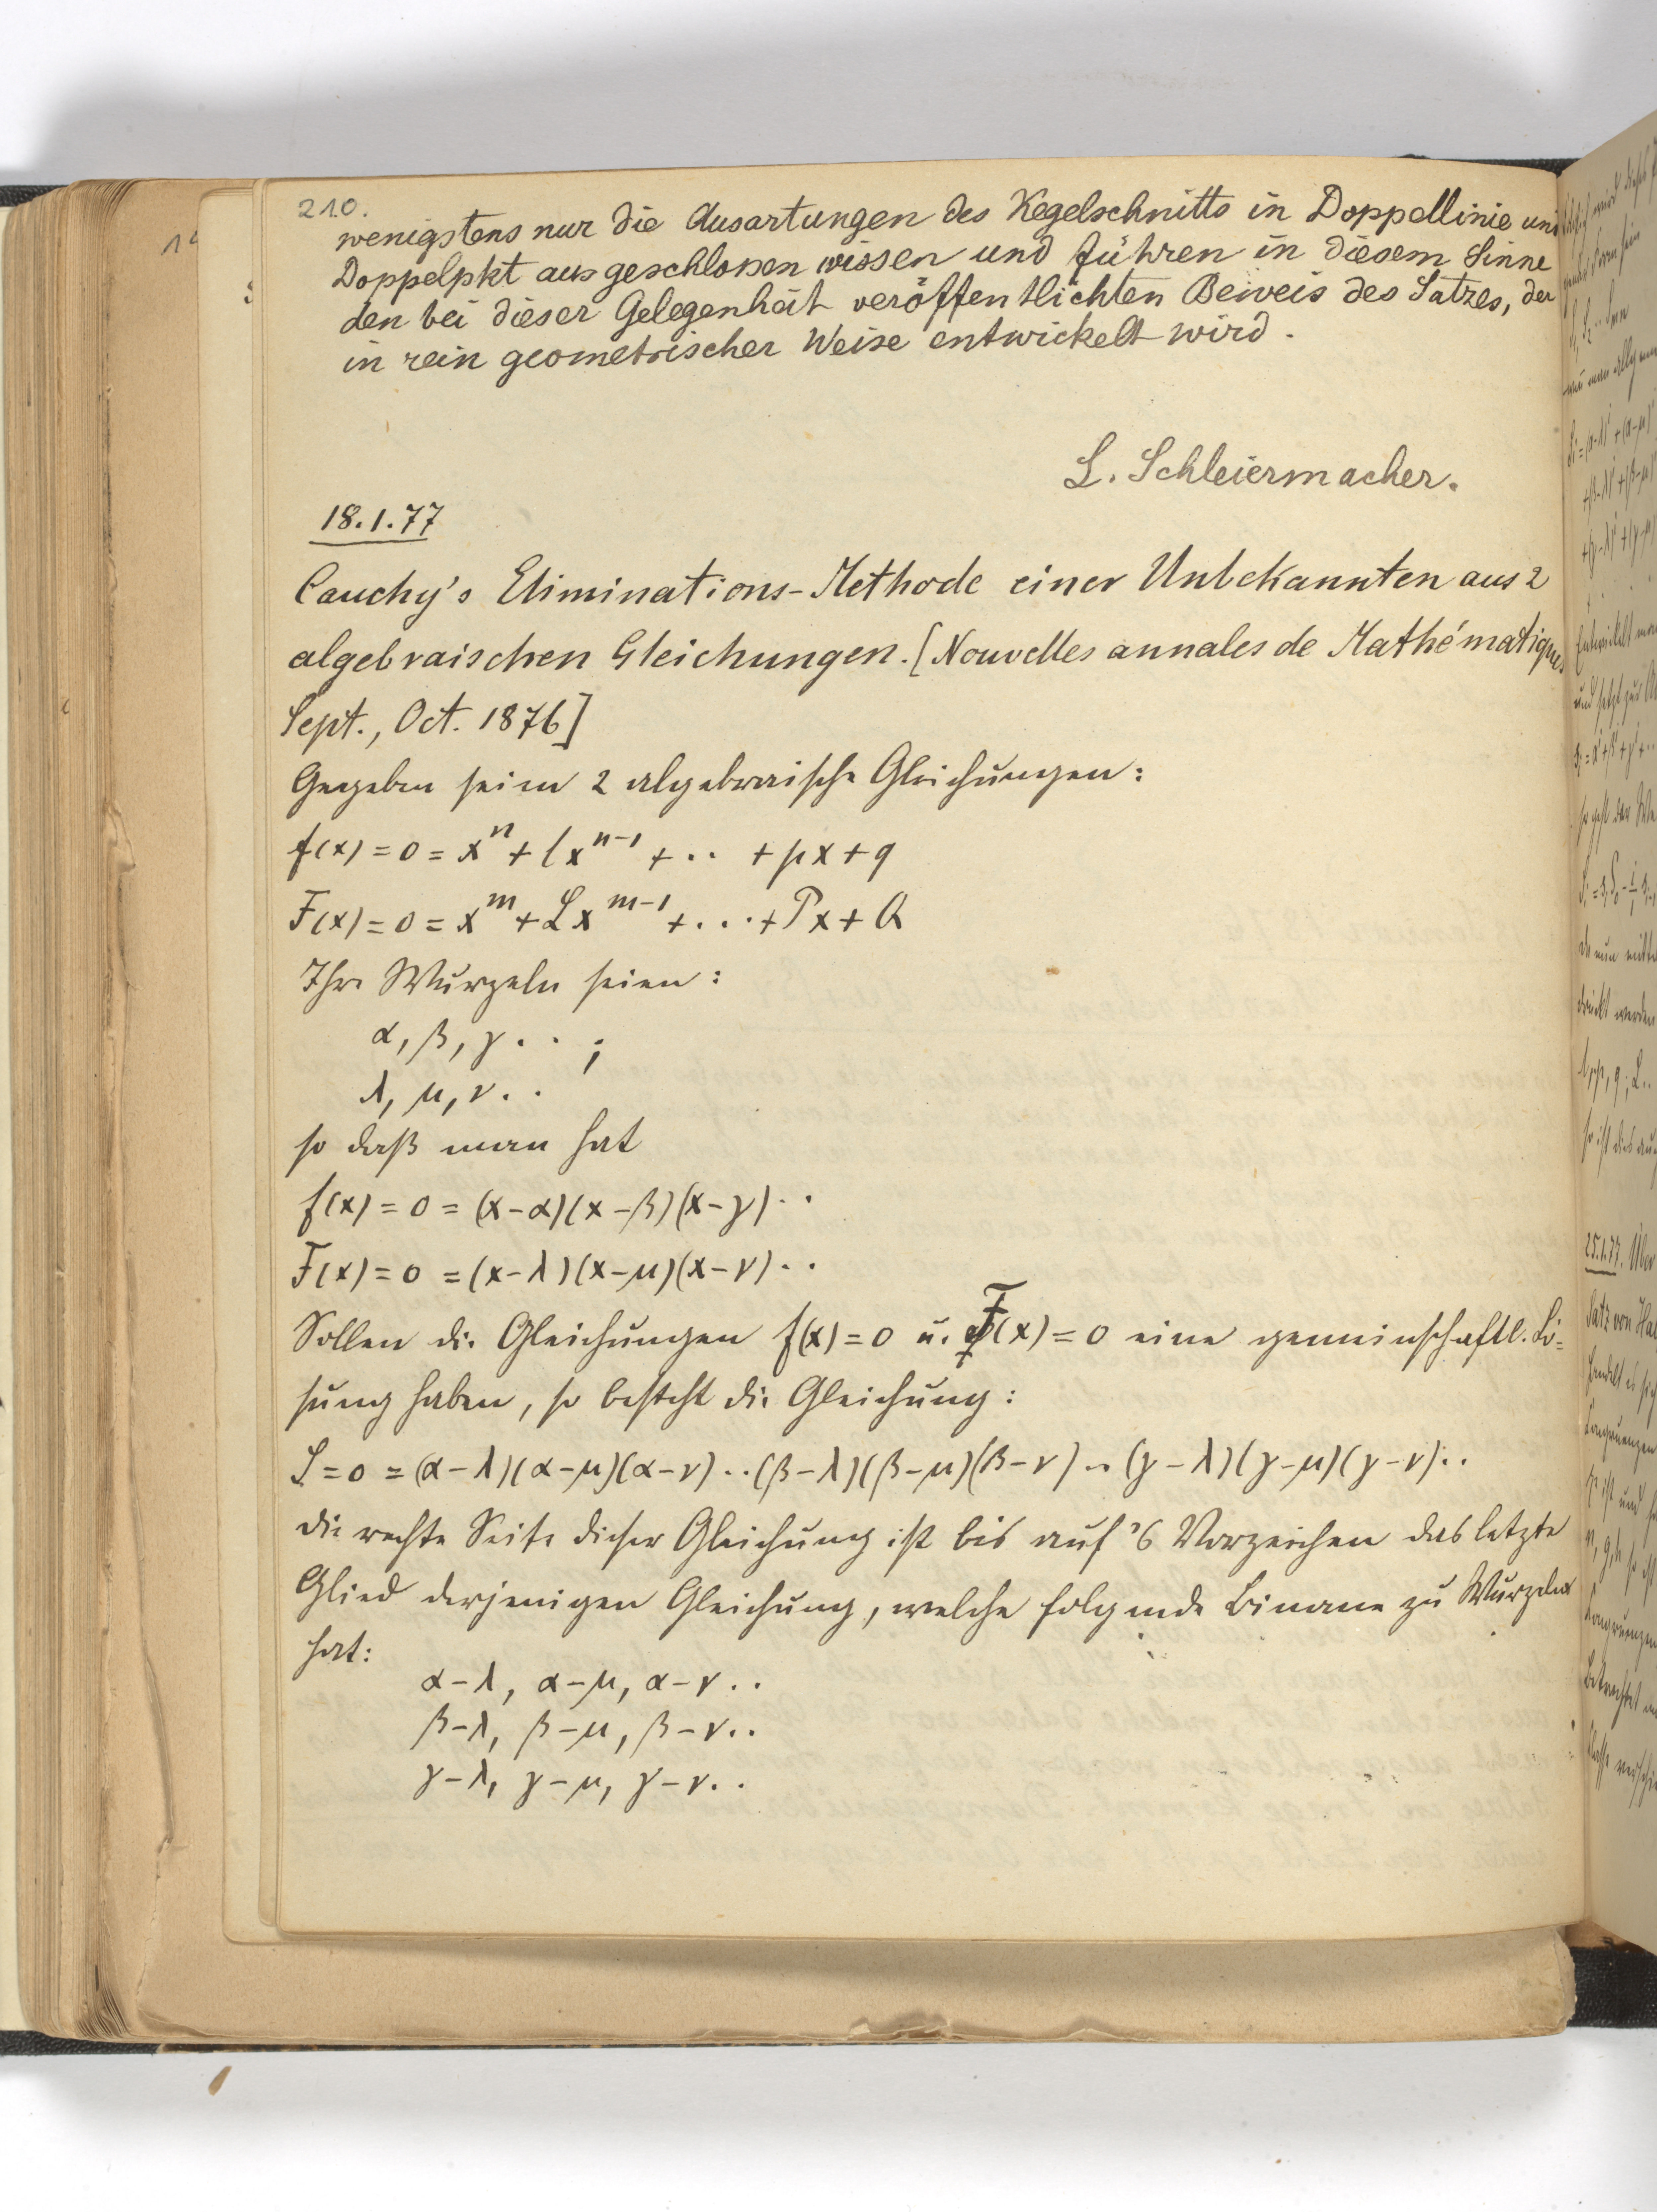 210.
wenigstens nur die Ausartungen des Kegelschnitts in Doppellinie und
Doppelpkt ausgeschloßen wissen und führen in diesem Sinne
den bei dieser Gelegenheit veröffentlichten Beweis des Satzes, der
in rein geometrischer Weise entwickelt wird.
L. Schleiermacher.
18.1.77
Cauchy's Eliminations-Methode einer Unbekannten aus 2
algebraischen Gleichungen. [Nouvelles annales de Mathématiques
Sept., Oct. 1876]
Gegeben seien 2 algebraische Gleichungen:
f(x) = 0 = x^n + lx^{n-1} + .. + px + q
F(x) = 0 = x^m + Lx^{m-1} + ... + Px + Q
Ihre Wurzeln seien:
α, β, γ . . ;
λ, μ, ν . .
so daß man hat
f(x) = 0 = (x-α)(x-β)(x-γ) ..
F(x) = 0 = (x-λ)(x-μ)(x-ν) ..
Sollen die Gleichungen f(x) = 0 u. F(x) = 0 eine gemeinschaftl. Lö=
sung haben, so besteht die Gleichung:
S = 0 = (α-λ)(α-μ)(α-ν) .. (β-λ)(β-μ)(β-ν) .. (γ-λ)(γ-μ)(γ-ν) ..
die rechte Seite dieser Gleichung ist bis auf's Vorzeichen das letzte
Glied derjenigen Gleichung, welche folgende Binome zu Wurzeln
hat:
α-λ, α-μ, α-ν ..
β-λ, β-μ, β-ν ..
γ-λ, γ-μ, γ-ν ..
25.1.77. Über
Satz von